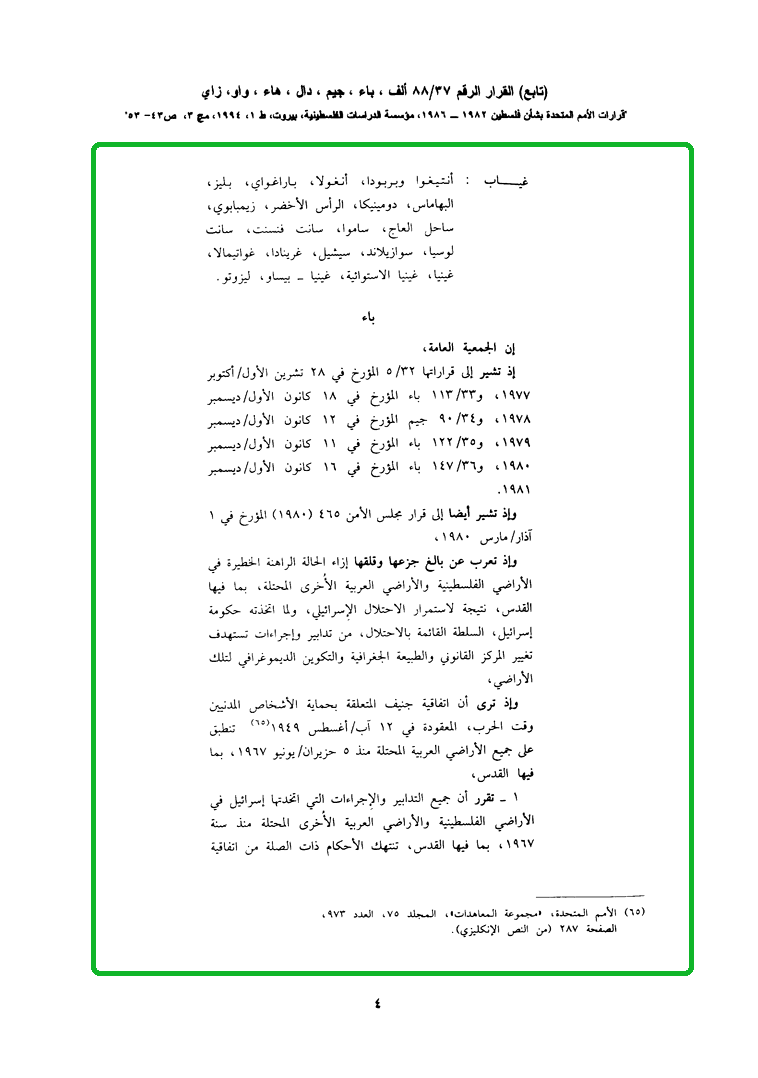 (تابع) القرار الرقم ٨٨/٣٧ ألف ، باء ، جيم ، دال ، هاء ، واو، زاي
"قرارات الأمم المتحدة بشأن فلسطين ١٩٨٢ ــ ١٩٨٦، مؤسسة الدراسات الفلسطينية، بيروت، ط ١، ١٩٩٤، مج ٣، ص٤٣- ٥٣"
غيـــاب : أنتيغوا وبربودا، أنغولا، باراغواي، بليز،
البهاماس، دومينيكا، الرأس الأخضر، زيمبابوي،
ساحل العاج، ساموا، سانت فنسنت، سانت
لوسيا، سوازيلاند، سيشيل، غرينادا، غواتيمالا،
غينيا، غينيا الاستوائية، غينيا ـ بيساو، ليزوتو.
باء
إن الجمعية العامة،
إذ تشير إلى قراراتها ٥/٣٢ المؤرخ في ٢٨ تشرين الأول/أكتوبر
١٩٧٧، و١١٣/٣٣ باء المؤرخ في ١٨ كانون الأول/ديسمبر
١٩٧٨، و٩٠/٣٤ جيم المؤرخ في ١٢ كانون الأول/ديسمبر
١٩٧٩، و١٢٢/٣٥ باء المؤرخ في ١١ كانون الأول/ديسمبر
١٩٨٠، و١٤٧/٣٦ باء المؤرخ في ١٦ كانون الأول/ديسمبر
١٩٨١.
وإذ تشير أيضا إلى قرار مجلس الأمن ٤٦٥ (١٩٨٠) المؤرخ في ١
آذار/مارس ١٩٨٠،
وإذ تعرب عن بالغ جزعها وقلقها إزاء الحالة الراهنة الخطيرة في
الأراضي الفلسطينية والأراضي العربية الأخرى المحتلة، بما فيها
القدس، نتيجة لاستمرار الاحتلال الإسرائيلي، ولما اتخذته حكومة
إسرائيل، السلطة القائمة بالاحتلال، من تدابير وإجراءات تستهدف
تغيير المركز القانوني والطبيعة الجغرافية والتكوين الديموغرافي لتلك
الأراضي،
وإذ ترى أن اتفاقية جنيف المتعلقة بحماية الأشخاص المدنيين
وقت الحرب، المعقودة في ١٢ آب/أغسطس ١٩٤٩(٦٥) تنطبق
على جميع الأراضي العربية المحتلة منذ ٥ حزيران/يونيو ١٩٦٧، بما
فيها القدس،
١ ـ تقرر أن جميع التدابير والإجراءات التي اتخدتها إسرائيل في
الأراضي الفلسطينية والأراضي العربية الأخرى المحتلة منذ سنة
١٩٦٧، بما فيها القدس، تنتهك الأحكام ذات الصلة من اتفاقية
(٦٥) الأمم المتحدة، «مجموعة المعاهدات»، المجلد ٧٥، العدد ٩٧٣،
الصفحة ٢٨٧ (من النص الإنكليزي).
٤